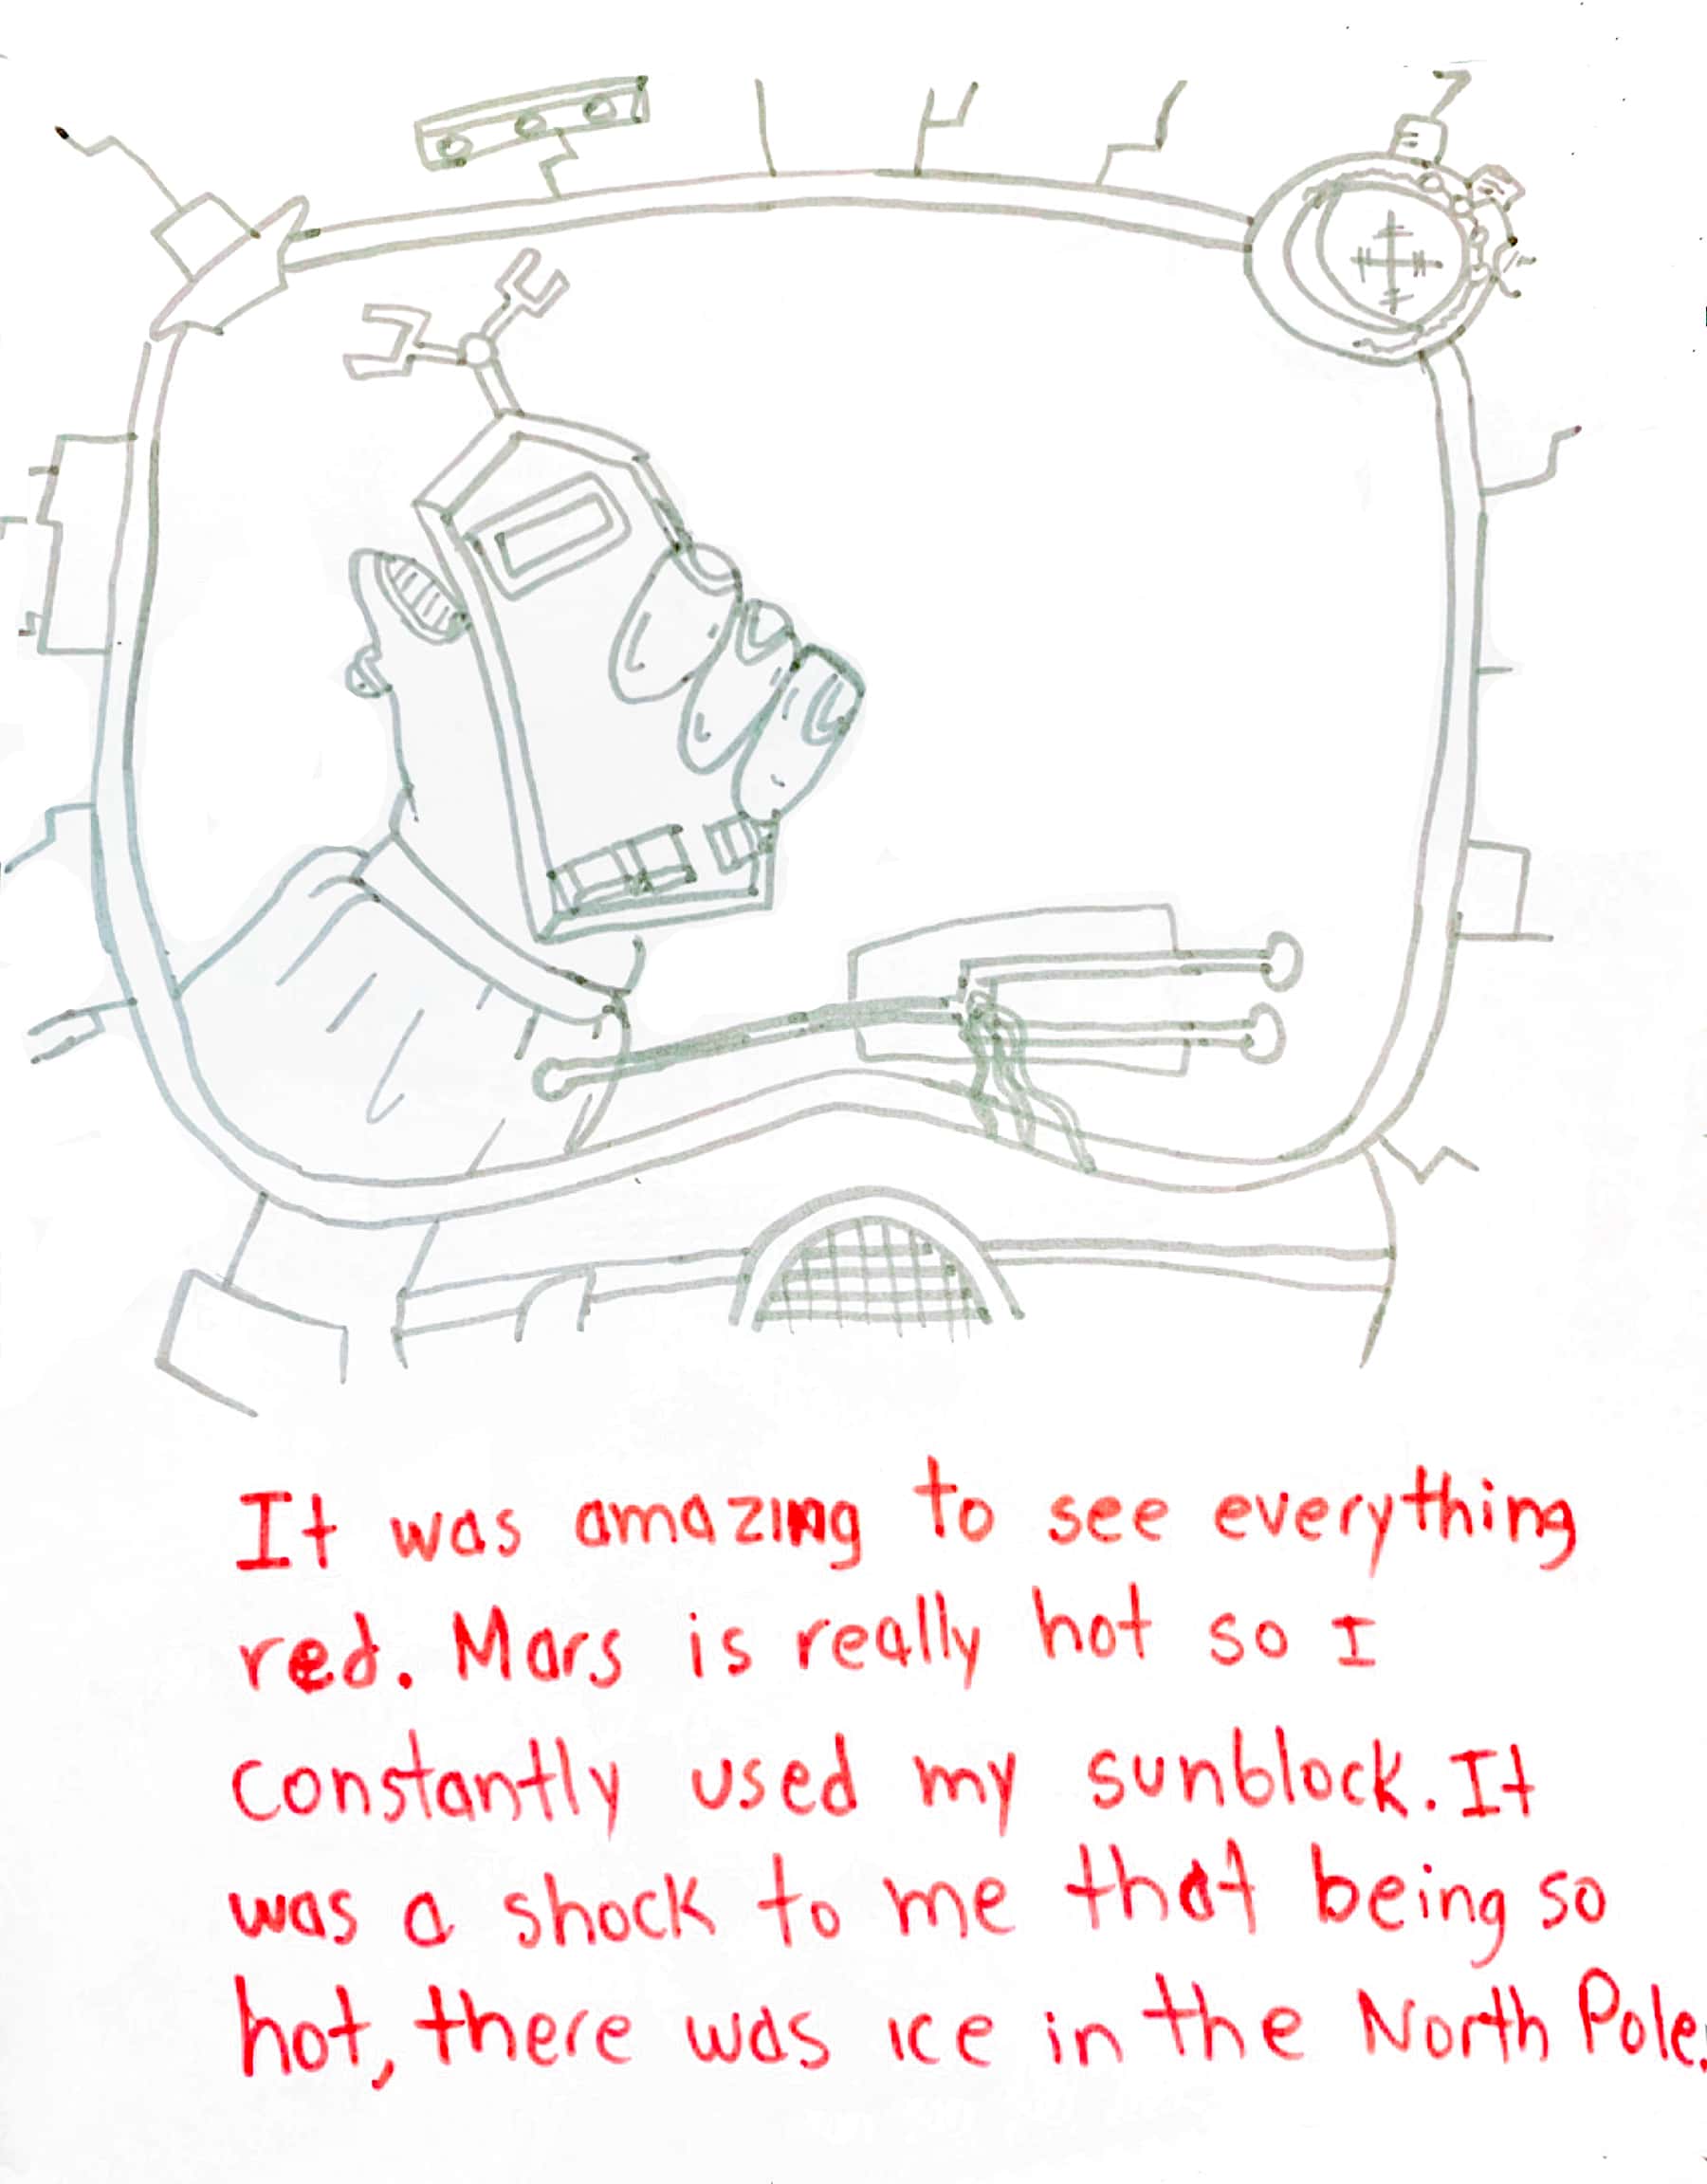 It was amazing to see everything
red. Mars is really hot so I
constantly used my sunblock. It
was a shock to me that being so
hot, there was ice in the North Pole.